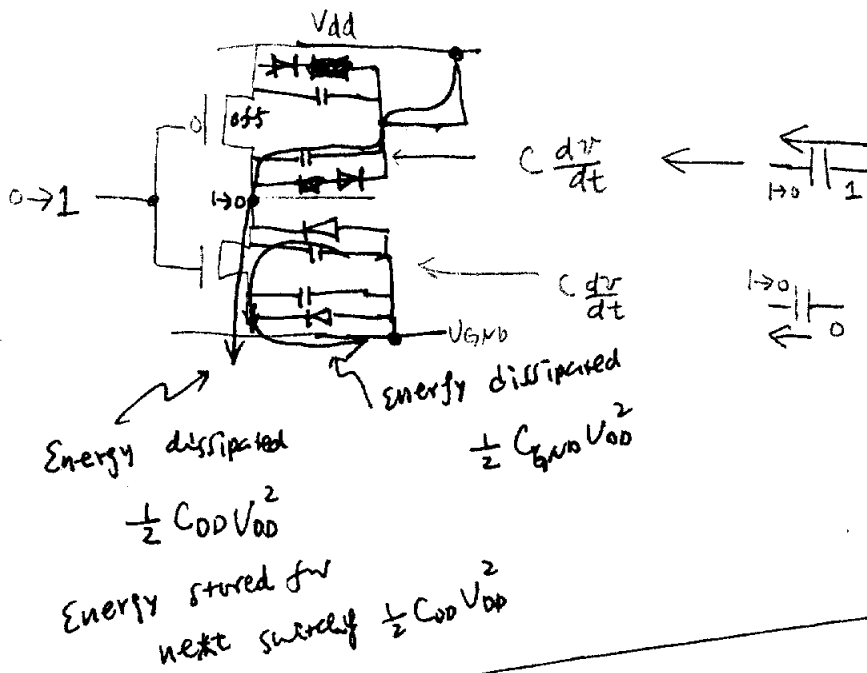 Vdd
off
0→1
1→0
C dv/dt
1→0 1
C dv/dt
1→0
0
VGND
Energy dissipated
1/2 C_GND V_DD^2
Energy dissipated
1/2 C_DD V_DD^2
Energy stored for
next switching 1/2 C_DD V_DD^2